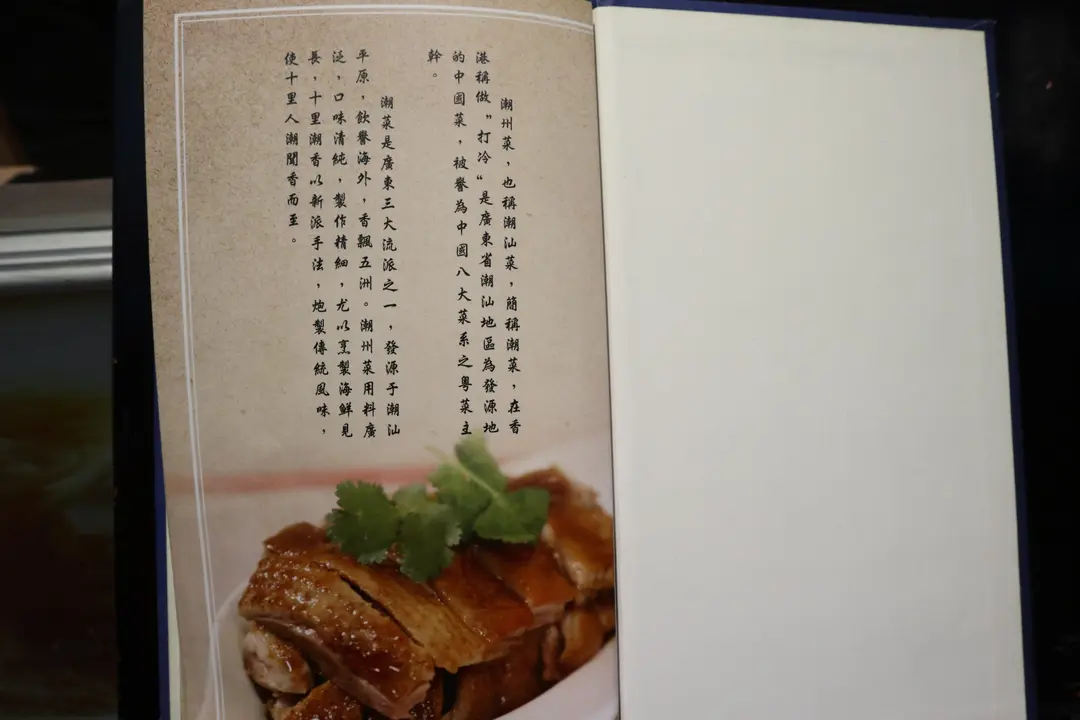 潮州菜，也稱潮汕菜，簡稱潮菜，在香
港稱做〝打冷〞是廣東省潮汕地區為發源地
的中國菜，被譽為中國八大菜系之粵菜主
幹。
潮菜是廣東三大流派之一，發源于潮汕
平原，飲譽海外，香飄五洲。潮州菜用料廣
泛，口味清純，製作精細，尤以烹製海鮮見
長，十里潮香以新派手法，炮製傳統風味，
使十里人潮聞香而至。